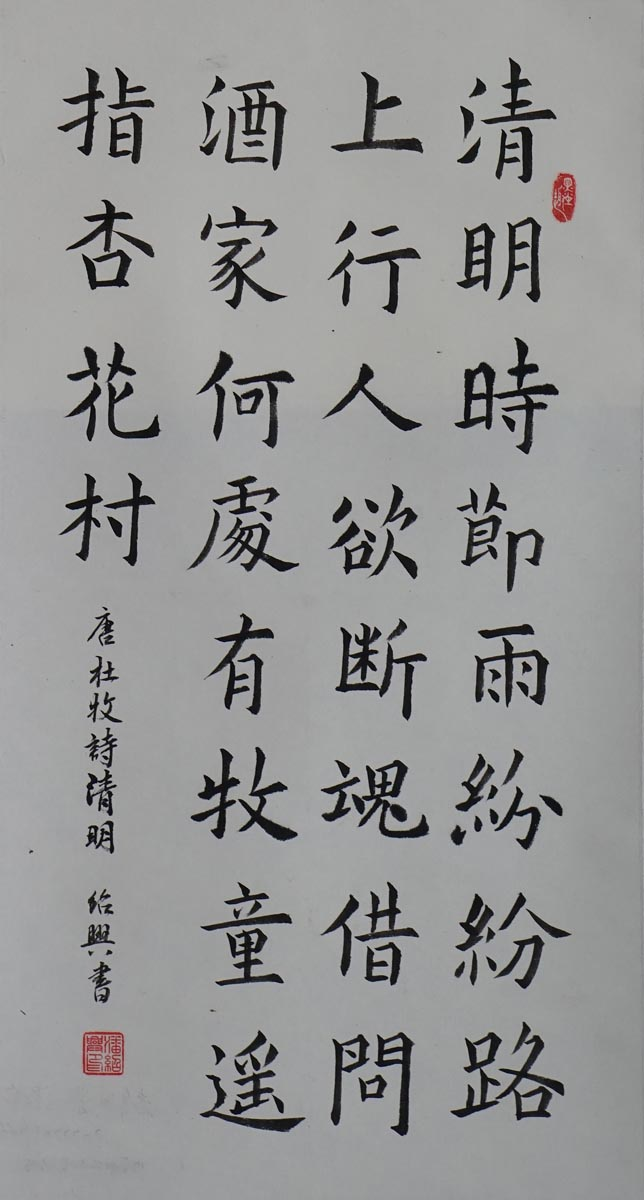 清明時節雨紛紛路
上行人欲断魂借問
酒家何處有牧童遥
指杏花村
唐杜牧詩清明 紹興書